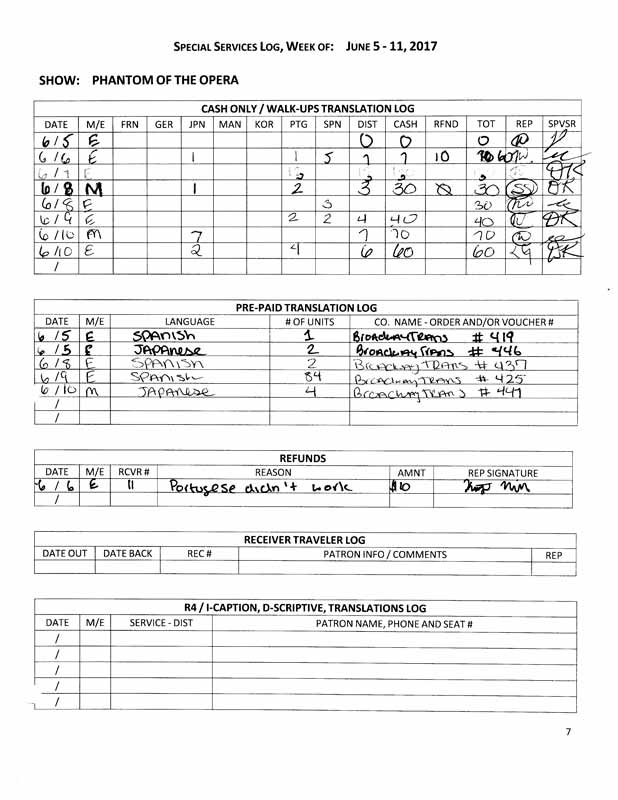 SPECIAL SERVICES LOG, WEEK OF: JUNE 5 - 11, 2017
SHOW: PHANTOM OF THE OPERA
CASH ONLY / WALK-UPS TRANSLATION LOG
DATE M/E FRN GER JPN MAN KOR PTG SPN DIST CASH RFND TOT REP SPVSR
6/5 E 0 0 0
6/6 E 1 1 5 7 7 10 60
6/7 E
6/8 M 1 2 3 30 0 30 SS DK
6/8 E 3 30
6/9 E 2 2 4 40 40 DK
6/10 M 7 7 70 70
6/10 E 2 4 6 60 60 DK
/
PRE-PAID TRANSLATION LOG
DATE M/E LANGUAGE # OF UNITS CO. NAME - ORDER AND/OR VOUCHER #
6/5 E SPANISH 1 BROADWAYTRANS # 419
6/5 E JAPANESE 2 BROADWAYTRANS # 446
6/8 E SPANISH 2 BROADWAYTRANS # 437
6/9 E SPANISH 84 BROADWAYTRANS # 425
6/10 M JAPANESE 4 BROADWAYTRANS # 447
/
/
REFUNDS
DATE M/E RCVR # REASON AMNT REP SIGNATURE
6/6 E 11 Portugese didn't work $10
/
RECEIVER TRAVELER LOG
DATE OUT DATE BACK REC # PATRON INFO / COMMENTS REP
R4 / I-CAPTION, D-SCRIPTIVE, TRANSLATIONS LOG
DATE M/E SERVICE - DIST PATRON NAME, PHONE AND SEAT #
/
/
/
/
/
7